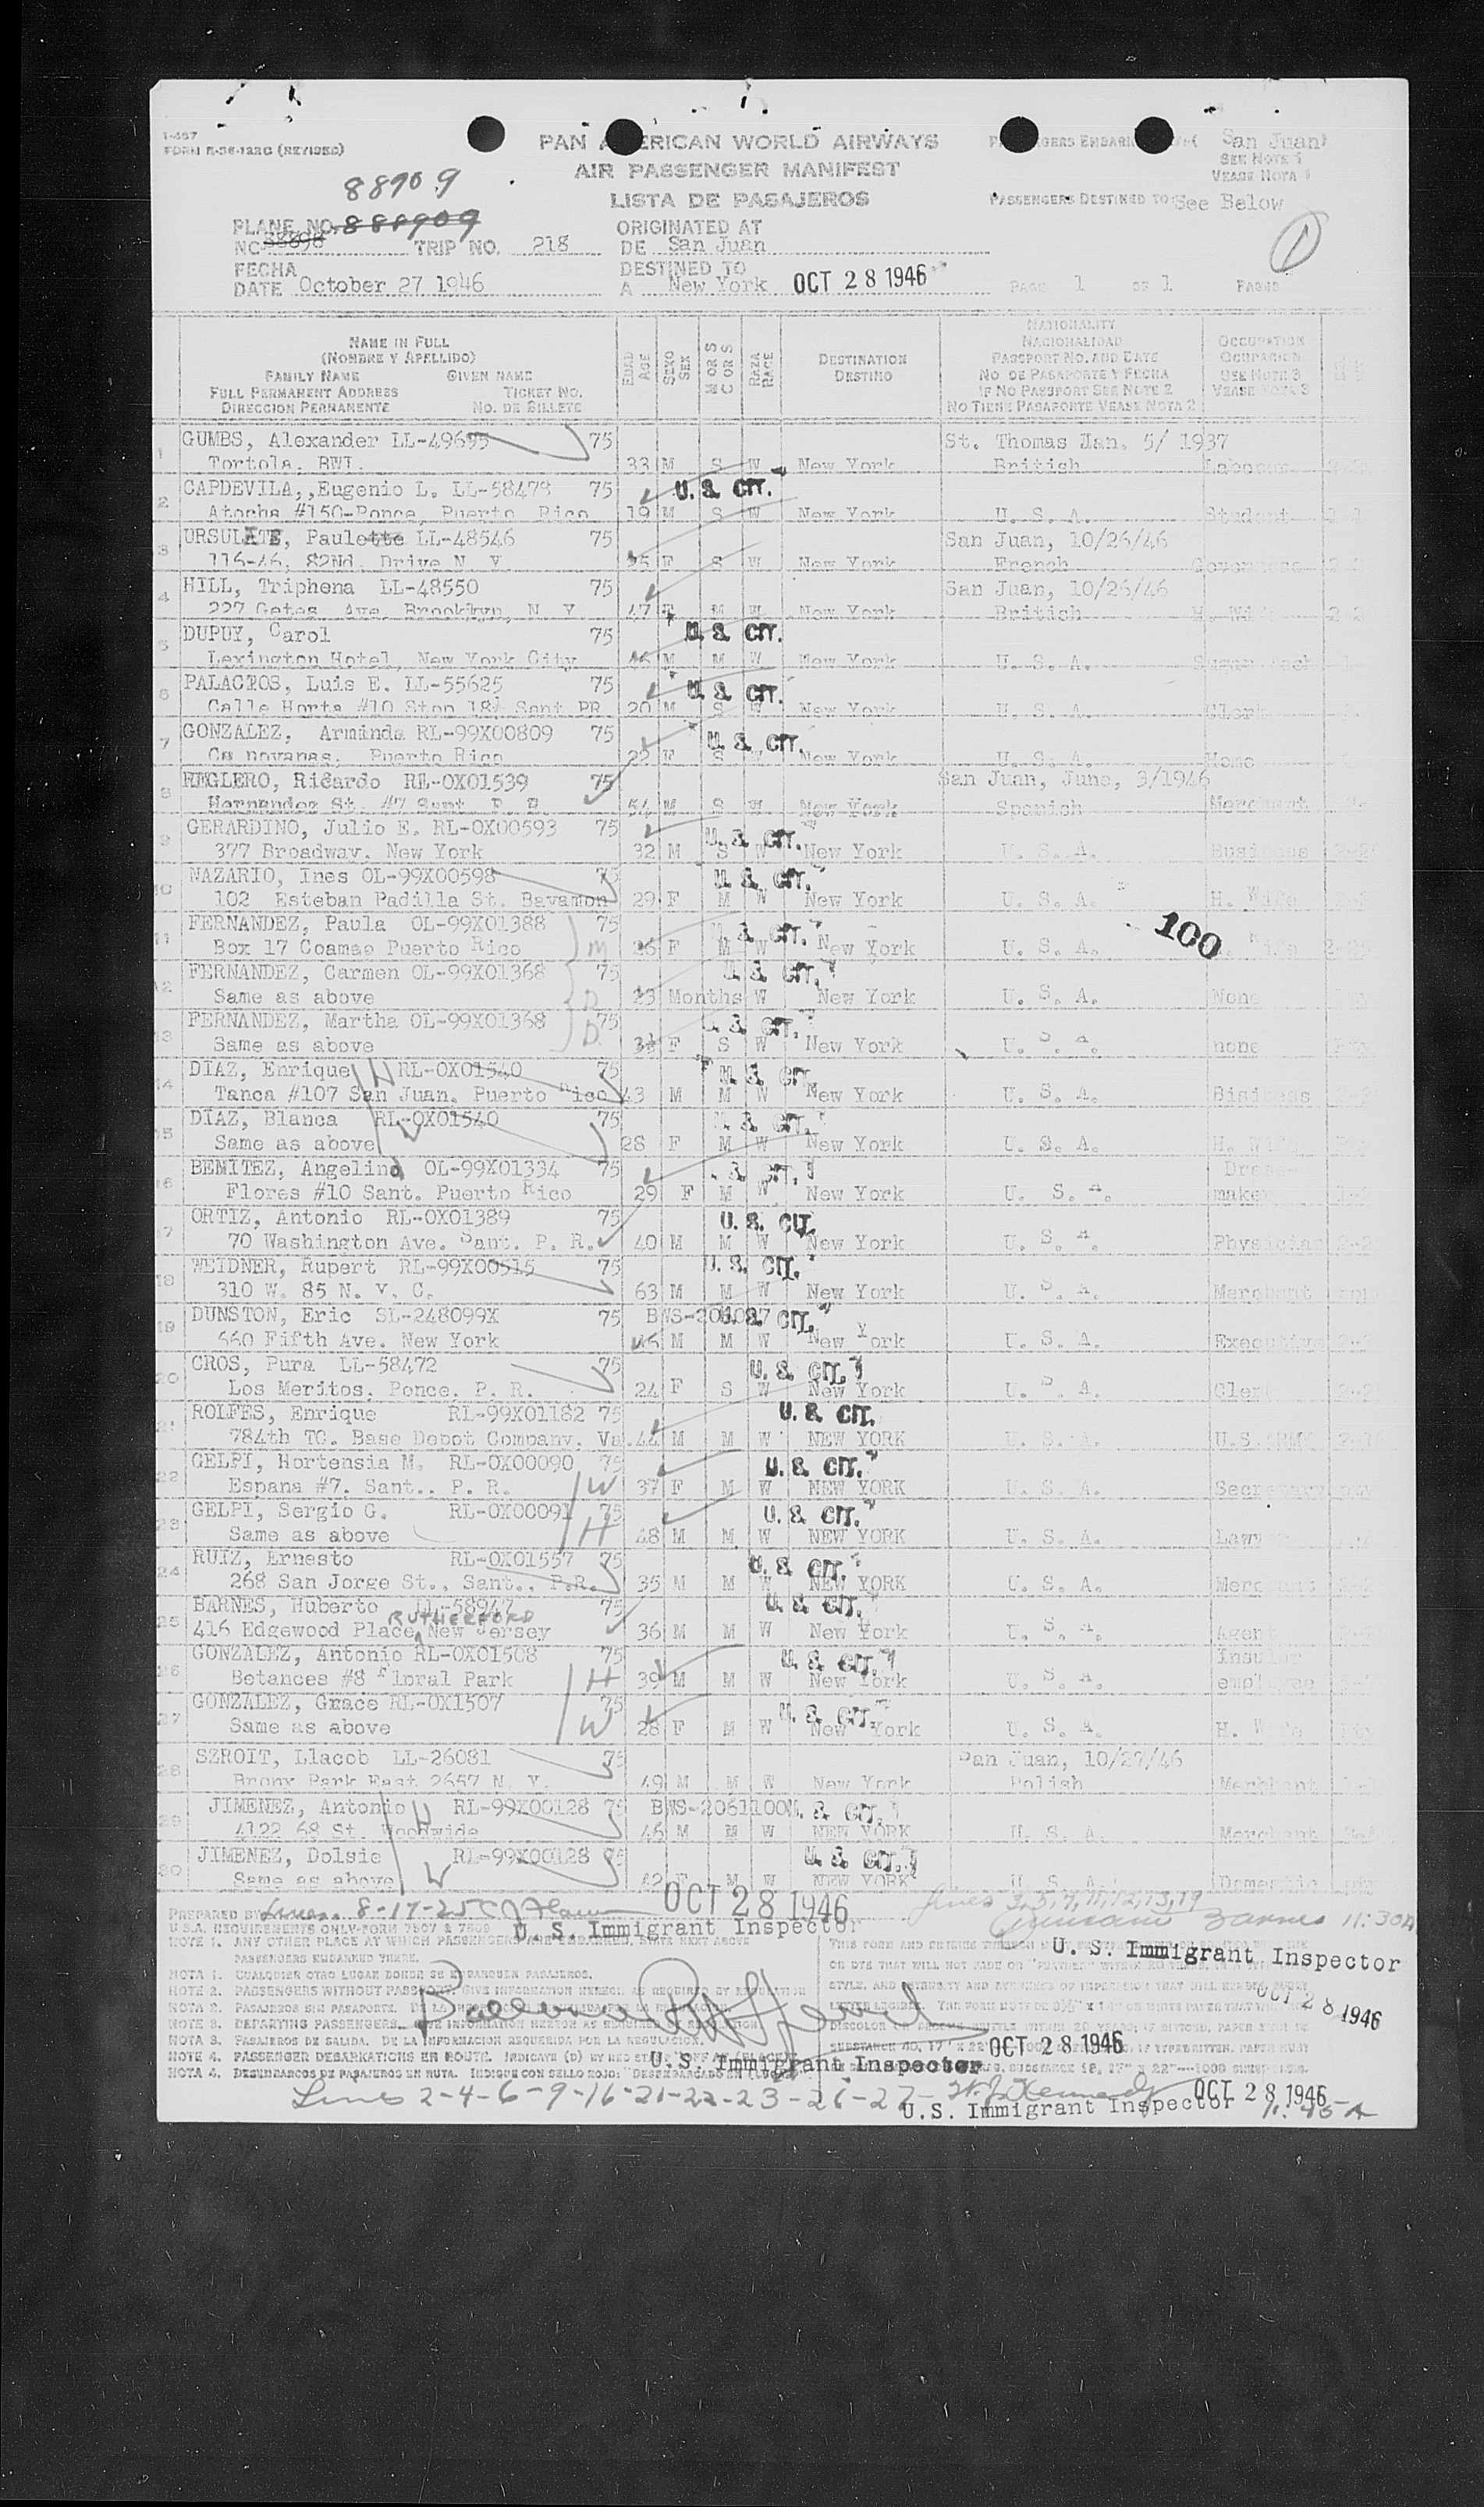 I-467
FORM R-56-122C (REVISED)
PAN AMERICAN WORLD AIRWAYS
AIR PASSENGER MANIFEST
LISTA DE PASAJEROS
San Juan
SEE NOTE 1
VEASE NOTA 1
PASSENGERS DESTINED TO: See Below
88909
PLANE NO. 888909
NC 88898 TRIP NO. 218
ORIGINATED AT
DE San Juan
FECHA
DATE October 27 1946
DESTINED TO
A New York OCT 28 1946
PAGE 1 OF 1 PAGES
1
NAME IN FULL
(NOMBRE Y APELLIDO)
FAMILY NAME GIVEN NAME
FULL PERMANENT ADDRESS TICKET NO.
DIRECCION PERMANENTE NO. DE BILLETE
EDAD AGE
SEXO SEX
M OR S C O R S
RAZA RACE
DESTINATION
DESTINO
NATIONALITY
NACIONALIDAD
PASSPORT NO. AND DATE
NO. DE PASAPORTE Y FECHA
IF NO PASSPORT SEE NOTE 2
NO TIENE PASAPORTE VEASE NOTA 2
OCCUPATION
OCUPACION
SEE NOTE 3
VEASE NOTA 3
1 GUMBS, Alexander LL-49655 75 St. Thomas Jan. 5/ 1937
Tortola, BWI. 33 M S W New York British
2 CAPDEVILA,,Eugenio L. LL-58478 75 U. S. CIT.
Atocha #150-Ponce, Puerto Rico 19 M S W New York U. S. A. Student
3 URSULATE, Paulette LL-48546 75 San Juan, 10/26/46
116-46, 82Nd. Drive N. Y. 25 F S W New York French
4 HILL, Triphena LL-48550 75 San Juan, 10/26/46
227 Gates Ave. Brooklyn, N. Y. 47 F M W New York British
5 DUPUY, Carol 75 U. S. CIT.
Lexington Hotel, New York City 46 M M W New York U. S. A.
6 PALACROS, Luis E. LL-55625 75 U. S. CIT.
Calle Horta #10 Stop 18½ Sant PR 20 M S W New York U. S. A. Clerk
7 GONZALEZ, Arminda RL-99X00809 75 U. S. CIT.
Ca novanas, Puerto Rico 22 F S W New York U. S. A. Home
8 REGLERO, Ricardo RL-OX01539 75 San Juan, June, 3/1946
Hernandez St. #7 Sant P. R. 54 M S W New York Spanish Merchant
9 GERARDINO, Julio E. RL-OX00593 75 U. S. CIT.
377 Broadway. New York 32 M S W New York U. S. A. Business
10 NAZARIO, Ines OL-99X00598 75 U. S. CIT.
102 Esteban Padilla St. Bayamon 29 F M W New York U. S. A. H. Wife
11 FERNANDEZ, Paula OL-99X01388 75 M U. S. CIT. 100
Box 17 Coamao Puerto Rico 26 F M W New York U. S. A.
12 FERNANDEZ, Carmen OL-99X01368 75 U. S. CIT.
Same as above D 23 Months W New York U. S. A. None
13 FERNANDEZ, Martha OL-99X01368 75 U. S. CIT.
Same as above D 3½ F S W New York U. S. A. none
14 DIAZ, Enrique H RL-OX01540 75 U. S. CIT.
Tanca #107 San Juan, Puerto Rico 43 M M W New York U. S. A. Bisiness
15 DIAZ, Blanca RL-OX01540 75 & CIT.
Same as above W 28 F M W New York U. S. A. H. Wife
16 BEMITEZ, Angelina OL-99X01334 75 & CIT.
Flores #10 Sant. Puerto Rico 29 F M W New York U. S. A. Dress-
make
17 ORTIZ, Antonio RL-OX01389 75 U. S. CIT.
70 Washington Ave. Sant. P. R. 40 M M W New York U. S. A. Physician
18 WEIDNER, Rupert RL-99X00515 75 U. S. CIT.
310 W. 85 N. Y. C. 63 M M W New York U. S. A. Merchant
19 DUNSTON, Eric SL-248099X 75 U. S. CIT.
660 Fifth Ave. New York 46 M M W New York U. S. A. Executive
20 CROS, Pura LL-58472 75 U. S. CIT.
Los Meritos, Ponce, P. R. 24 F S W New York U. S. A.
21 ROLFES, Enrique RL-99X01182 75 U. S. CIT.
784th TC. Base Depot Company, Va. 44 M M W NEW YORK U. S. A. U.S. ARMY
22 GELPI, Hortensia M. RL-OX00090 75 U. S. CIT.
Espana #7. Sant., P. R. W 37 F M W NEW YORK U. S. A. Secretary
23 GELPI, Sergio G. RL-OX00091 75 U. S. CIT.
Same as above H 48 M M W NEW YORK U. S. A.
24 RUIZ, Ernesto RL-OX01557 75 U. S. CIT.
268 San Jorge St., Sant., P.R. 35 M M W NEW YORK U. S. A.
25 BARNES, Huberto LL-58947 75 U. S. CIT.
RUTHERFORD
416 Edgewood Place, New Jersey 36 M M W New York U. S. A. Agent
26 GONZALEZ, Antonio RL-OX01508 75 U. S. CIT. Insular
Betances #8 Floral Park H 39 M M W New York U. S. A. employee
27 GONZALEZ, Grace RL-OX1507 75 U. S. CIT.
Same as above W 28 F M W New York U. S. A. H. Wife
28 SZROIT, Llacob LL-26081 75 San Juan, 10/27/46
Bronx Park East 2657 N. Y. 49 M M W New York Polish Merchant
29 JIMENEZ, Antonio H RL-99X00128 75 & CIT.
4122 68 St. Woodwide 46 M M W NEW YORK U. S. A. Merchant
30 JIMENEZ, Dolsie RL-99X00128 75 U. S. CIT.
Same as above W 42 F M W NEW YORK U. S. A. Domestic
OCT 28 1946
Lines 3,5,7,11,12,13,19
PREPARED BY Lines 8-17-25
Barnes 11:30A
U. S. Immigrant Inspector
U. S. Immigrant Inspector
OCT 28 1946
NOTE 1. ANY OTHER PLACE AT WHICH PASSENGERS ARE EMBARKED, STATE NEXT ABOVE
PASSENGERS EMBARKED THERE.
NOTA 1. CUALQUIER OTRO LUGAR DONDE SE EMBARQUEN PASAJEROS.
NOTA 2. PASAJEROS SIN PASAPORTE.
NOTE 3. DEPARTING PASSENGERS.
NOTA 3. PASAJEROS DE SALIDA. DE LA INFORMACION REQUERIDA POR LA REGULACION.
NOTE 4. PASSENGER DEBARKATIONS EN ROUTE.
NOTA 4. DESEMBARCOS DE PASAJEROS EN RUTA.
U.S. Immigrant Inspector
OCT 28 1946
Lines 2-4-6-9-16-21-22-23-26-27- Kennedy OCT 28 1946
U.S. Immigrant Inspector 11:45-A